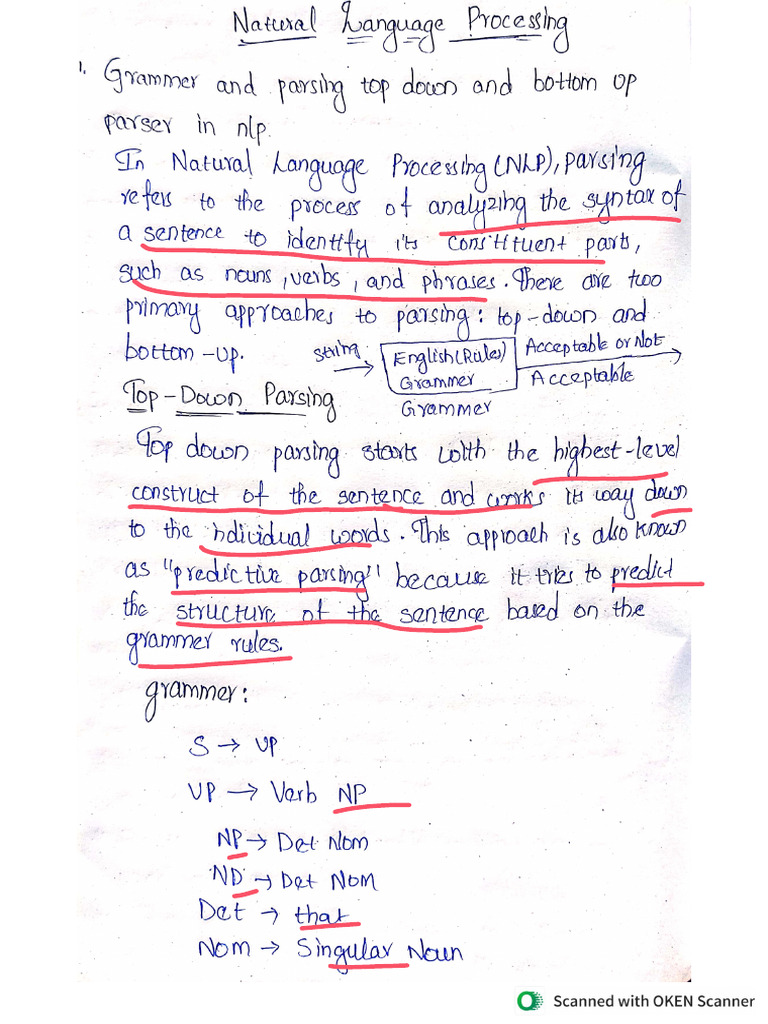 Natural Language Processing
1. Grammer and parsing top down and bottom up
parser in nlp.
In Natural Language Processing (NLP), parsing
refers to the process of analyzing the syntax of
a sentence to identify its constituent parts,
such as nouns, verbs, and phrases. There are two
primary approaches to parsing: top-down and
bottom-up.
string English (Rules) Acceptable or Not
Grammer Acceptable
Grammer
Top-Down Parsing
Top down parsing starts with the highest-level
construct of the sentence and works its way down
to the individual words. This approach is also known
as "predictive parsing" because it tries to predict
the structure of the sentence based on the
grammer rules.
grammer:
S → VP
VP → Verb NP
NP → Det Nom
ND → Det Nom
Det → that
Nom → Singular Noun
Scanned with OKEN Scanner